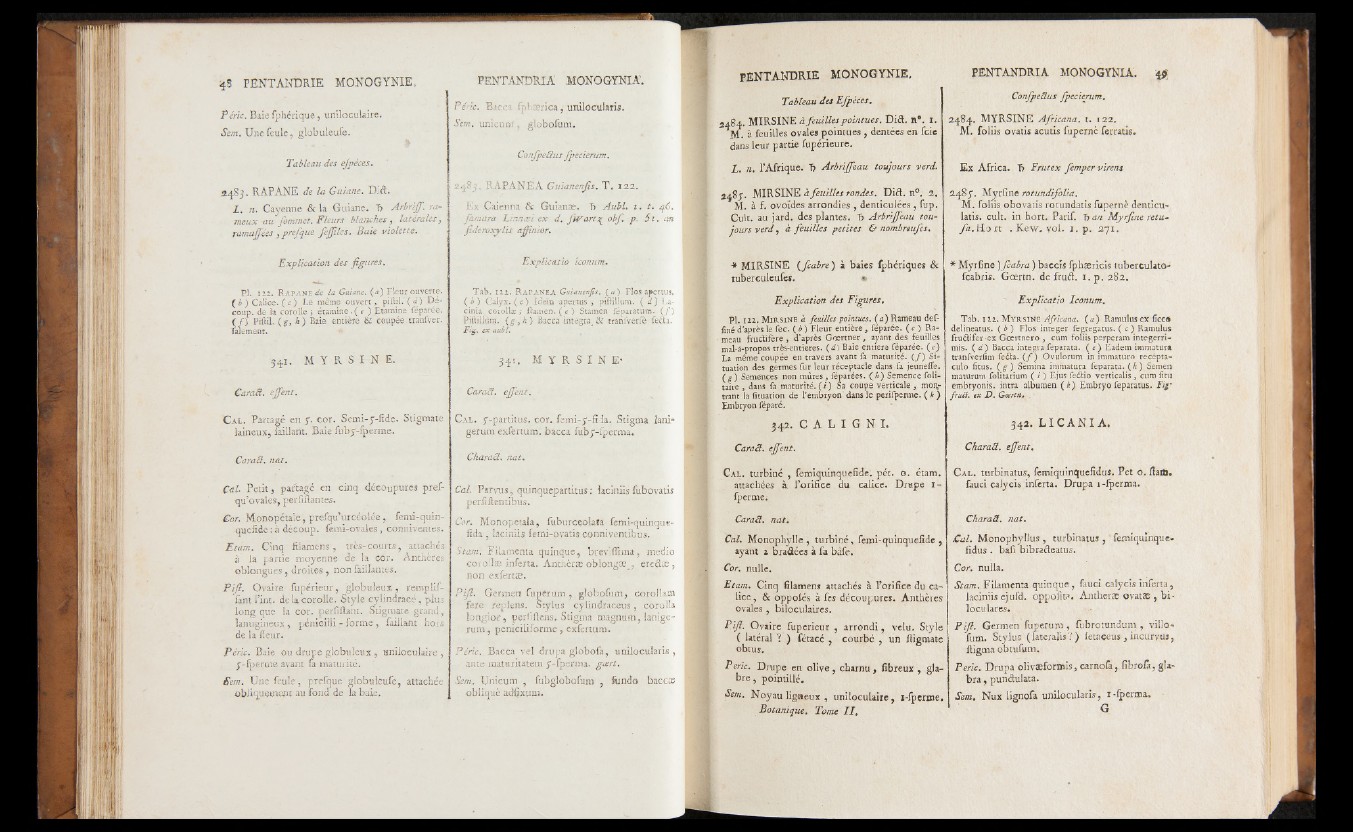 48 PENTANDRIE MONOGYNIE.
Péric. Baie sphérique, uniloculaire.
Sem. Une seule, globuleuse.
Tableau des espèces.
2483. RAPANE de la Guiane. Dict.
L. n. Cayenne & la Guiane. ♄ Arbriss. ra-
meux au sommet. Fleurs blanches, latérales,
ramassées, presque sessiles. Baie violette.
Explication des figures.
Pl. 122. RAPANE de la Guiane. (a) Fleur ouverte.
(b) Calice. (c) Le même ouvert, pistil. (d) Dé-
coup. de la corolle; étamine. (e) Etamine séparée.
(f) Pistil. (g, h) Baie entière & coupée transver-
salement.
341. MYRSINE.
Caract. essent.
CAL. Partagé en 5. cor. Semi-5-fide. Stigmate
laineux, saillant. Baie sub5-sperme.
Caract. nat.
Cal. Petit, partagé en cinq découpures pres-
qu'ovales, persistantes.
Cor. Monopétale, presqu'urcéolée, semi-quin-
quefide: à découp. semi-ovales, conniventes.
Etam. Cinq filamens, très-courts, attachés
à la partie moyenne de la cor. Anthères
oblongues, droites, non saillantes.
Pist. Ovaire supérieur, globuleux, remplis-
sant l'int. de la corolle. Style cylindrace, plus
long que la cor. persistant. Stigmate grand,
lanugineux, pénicilli-forme, saillant hors
de la fleur.
Péric. Baie ou drupe globuleux, uniloculaire,
5-sperme avant sa maturité.
Sem. Une seule, presque globuleuse, attachée
obliquement au fond de la baie.
PENTANDRIA MONOGYNIA.
Péric. Bacca sphærica, unilocularis.
Sem. unicum, globosum.
Conspectus specierum.
2483. RAPANEA Guianensis. T. 122.
Ex Caienna & Guianæ. ♄ Aubl. 1. t. 46.
samara Linnæi ex d. swartz obs. p. 51. an
sideroxylis affinior.
Explicatio iconum.
Tab. 122. RAPANEA Guianensis. (a) Flos apertus.
(b) Calyx. (c) Idem apertus, pistillum. (d) La-
cinia corollæ; stamen. (e) Stamen separatum. (f)
Pistillum. (g, h) Bacca integra & transversè secta.
Fig. ex aubl.
341. MYRSINE.
Caract. essent.
CAL. 5-partitus. cor. semi-5-fida. Stigma lani-
gerum exsertum. bacca sub5-sperma.
Charact. nat.
Cal. Parvus, quinquepartitus: laciniis subovatis
persistentibus.
Cor. Monopetala, suburceolata semi-quinque-
fida, laciniis semi-ovatis conniventibus.
Stam. Filamenta quinque, brevissima, medio
corollæ inserta. Antheræ oblongæ, erectæ,
non exsertæ.
Pist. Germen superum, globosum, corollam
fere replens. Stylus cylindraceus, corolla
longior, persistens. Stigma magnum, lanige-
rum, penicilliforme, exsertum.
Péric. Bacca vel drupa globosa, unilocularis,
ante maturitatem 5-sperma. gært.
Sem. Unicum, subglobosum, fundo baccæ
obliquè adfixum.
PENTANDRIE MONOGYNIE.
Tableau des Espèces.
2484. MIRSINE à feuilles pointues. Dict. n°. 1.
M. à feuilles ovales pointues, dentées en scie
dans leur partie supérieure.
L. n. l'Afrique. ♄ Arbrisseau toujours verd.
2485. MIRSINE à feuilles rondes. Dict. n°. 2.
M. à f. ovoïdes arrondies, denticulées, sup.
Cult. au jard. des plantes. ♄ Arbrisseau tou-
jours verd, à feuilles petites & nombreuses.
* MIRSINE (scabre) à baies sphériques &
tuberculeuses.
Explication des Figures.
Pl. 122. MIRSINE à feuilles pointues. (a) Rameau des-
siné d'après le sec. (b) Fleur entière, séparée. (c) Ra-
meau fructifère, d'après Gœrtner, ayant des feuilles
mal-à-propos très-entières. (d) Baie entière séparée. (e)
La même coupée en travers avant sa maturité. (f) Si-
tuation des germes sur leur réceptacle dans sa jeunesse.
(g) Semences non mûres, séparées. (h) Semence soli-
taire, dans sa maturité. (i) Sa coupe verticale, mon-
trant la situation de l'embryon dans le perisperme. (k)
Embryon séparé.
342. CALIGNI.
Caract. essent.
CAL. turbiné, semiquinquefide. pét. 0. étam.
attachées à l'orifice du calice. Drupe 1-
sperme.
Caract. nat.
Cal. Monophylle, turbiné, semi-quinquefide,
ayant 2 bractées à sa base.
Cor. nulle.
Etam. Cinq filamens attachés à l'orifice du ca-
lice, & opposés à ses découpures. Anthères
ovales, biloculaires.
Pist. Ovaire superieur, arrondi, velu. Style
(latéral ?) sétacé, courbé, un stigmate
obtus.
Peric. Drupe en olive, charnu, fibreux, gla-
bre, pointillé.
Sem. Noyau ligneux, uniloculaire, 1-sperme.
Botanique. Tome II.
PENTANDRIA MONOGYNIA. 49
Conspectus specierum.
2484. MYRSINE Africana. t. 122.
M. foliis ovatis acutis supernè serratis.
Ex Africa. ♄ Frutex semper virens
2485. Myrsine rotundifolia.
M. foliis obovatis rotundatis supernè denticu-
latis. cult. in hort. Paris. ♄ an Myrsine retu-
sa. Hort. Kew. vol. 1. p. 271.
* Myrsine) scabra) baccis sphæricis tuberculato-
scabris. Gœrtn. de fruct. 1. p. 282.
Explicatio Iconum.
Tab. 122. MYRSINE Africana. (a) Ramulus ex sicco
delineatus. (b) Flos integer segregatus. (c) Ramulus
fructifer ex Gœrtnero, cum foliis perperam integerri-
mis. (d) Bacca integra separata. (e) Eadem immatura
transversim secta. (f) Ovulorum in immaturo recepta-
culo situs. (g) Semina immatura separata. (h) Semen
maturum solitarium (i) Ejus sectio verticalis, cum situ
embryonis. intra albumen (k) Embryo separatus. Fig.
fruct. ex D. Gœrtn.
342. LICANIA.
Charact. essent.
CAL. turbinatus, semiquinquefidus. Pet 0. stam.
fauci calycis inserta. Drupa 1-sperma.
Charact. nat.
Cal. Monophyllus, turbinatus, semiquinque-
fidus. basi bibracteatus.
Cor. nulla.
Stam. Filamenta quinque, fauci calycis inserta,
laciniis ejusd. opposita. Antheræ ovatæ, bi-
loculares.
Pist. Germen superum, subrotundum, villo-
sum. Stylus (lateralis?) setaceus, incurvus,
stigma obtusum.
Peric. Drupa olivæformis, carnosa, fibrosa, gla-
bra, punctulata.
Sem. Nux lignosa unilocularis, 1-sperma.
G